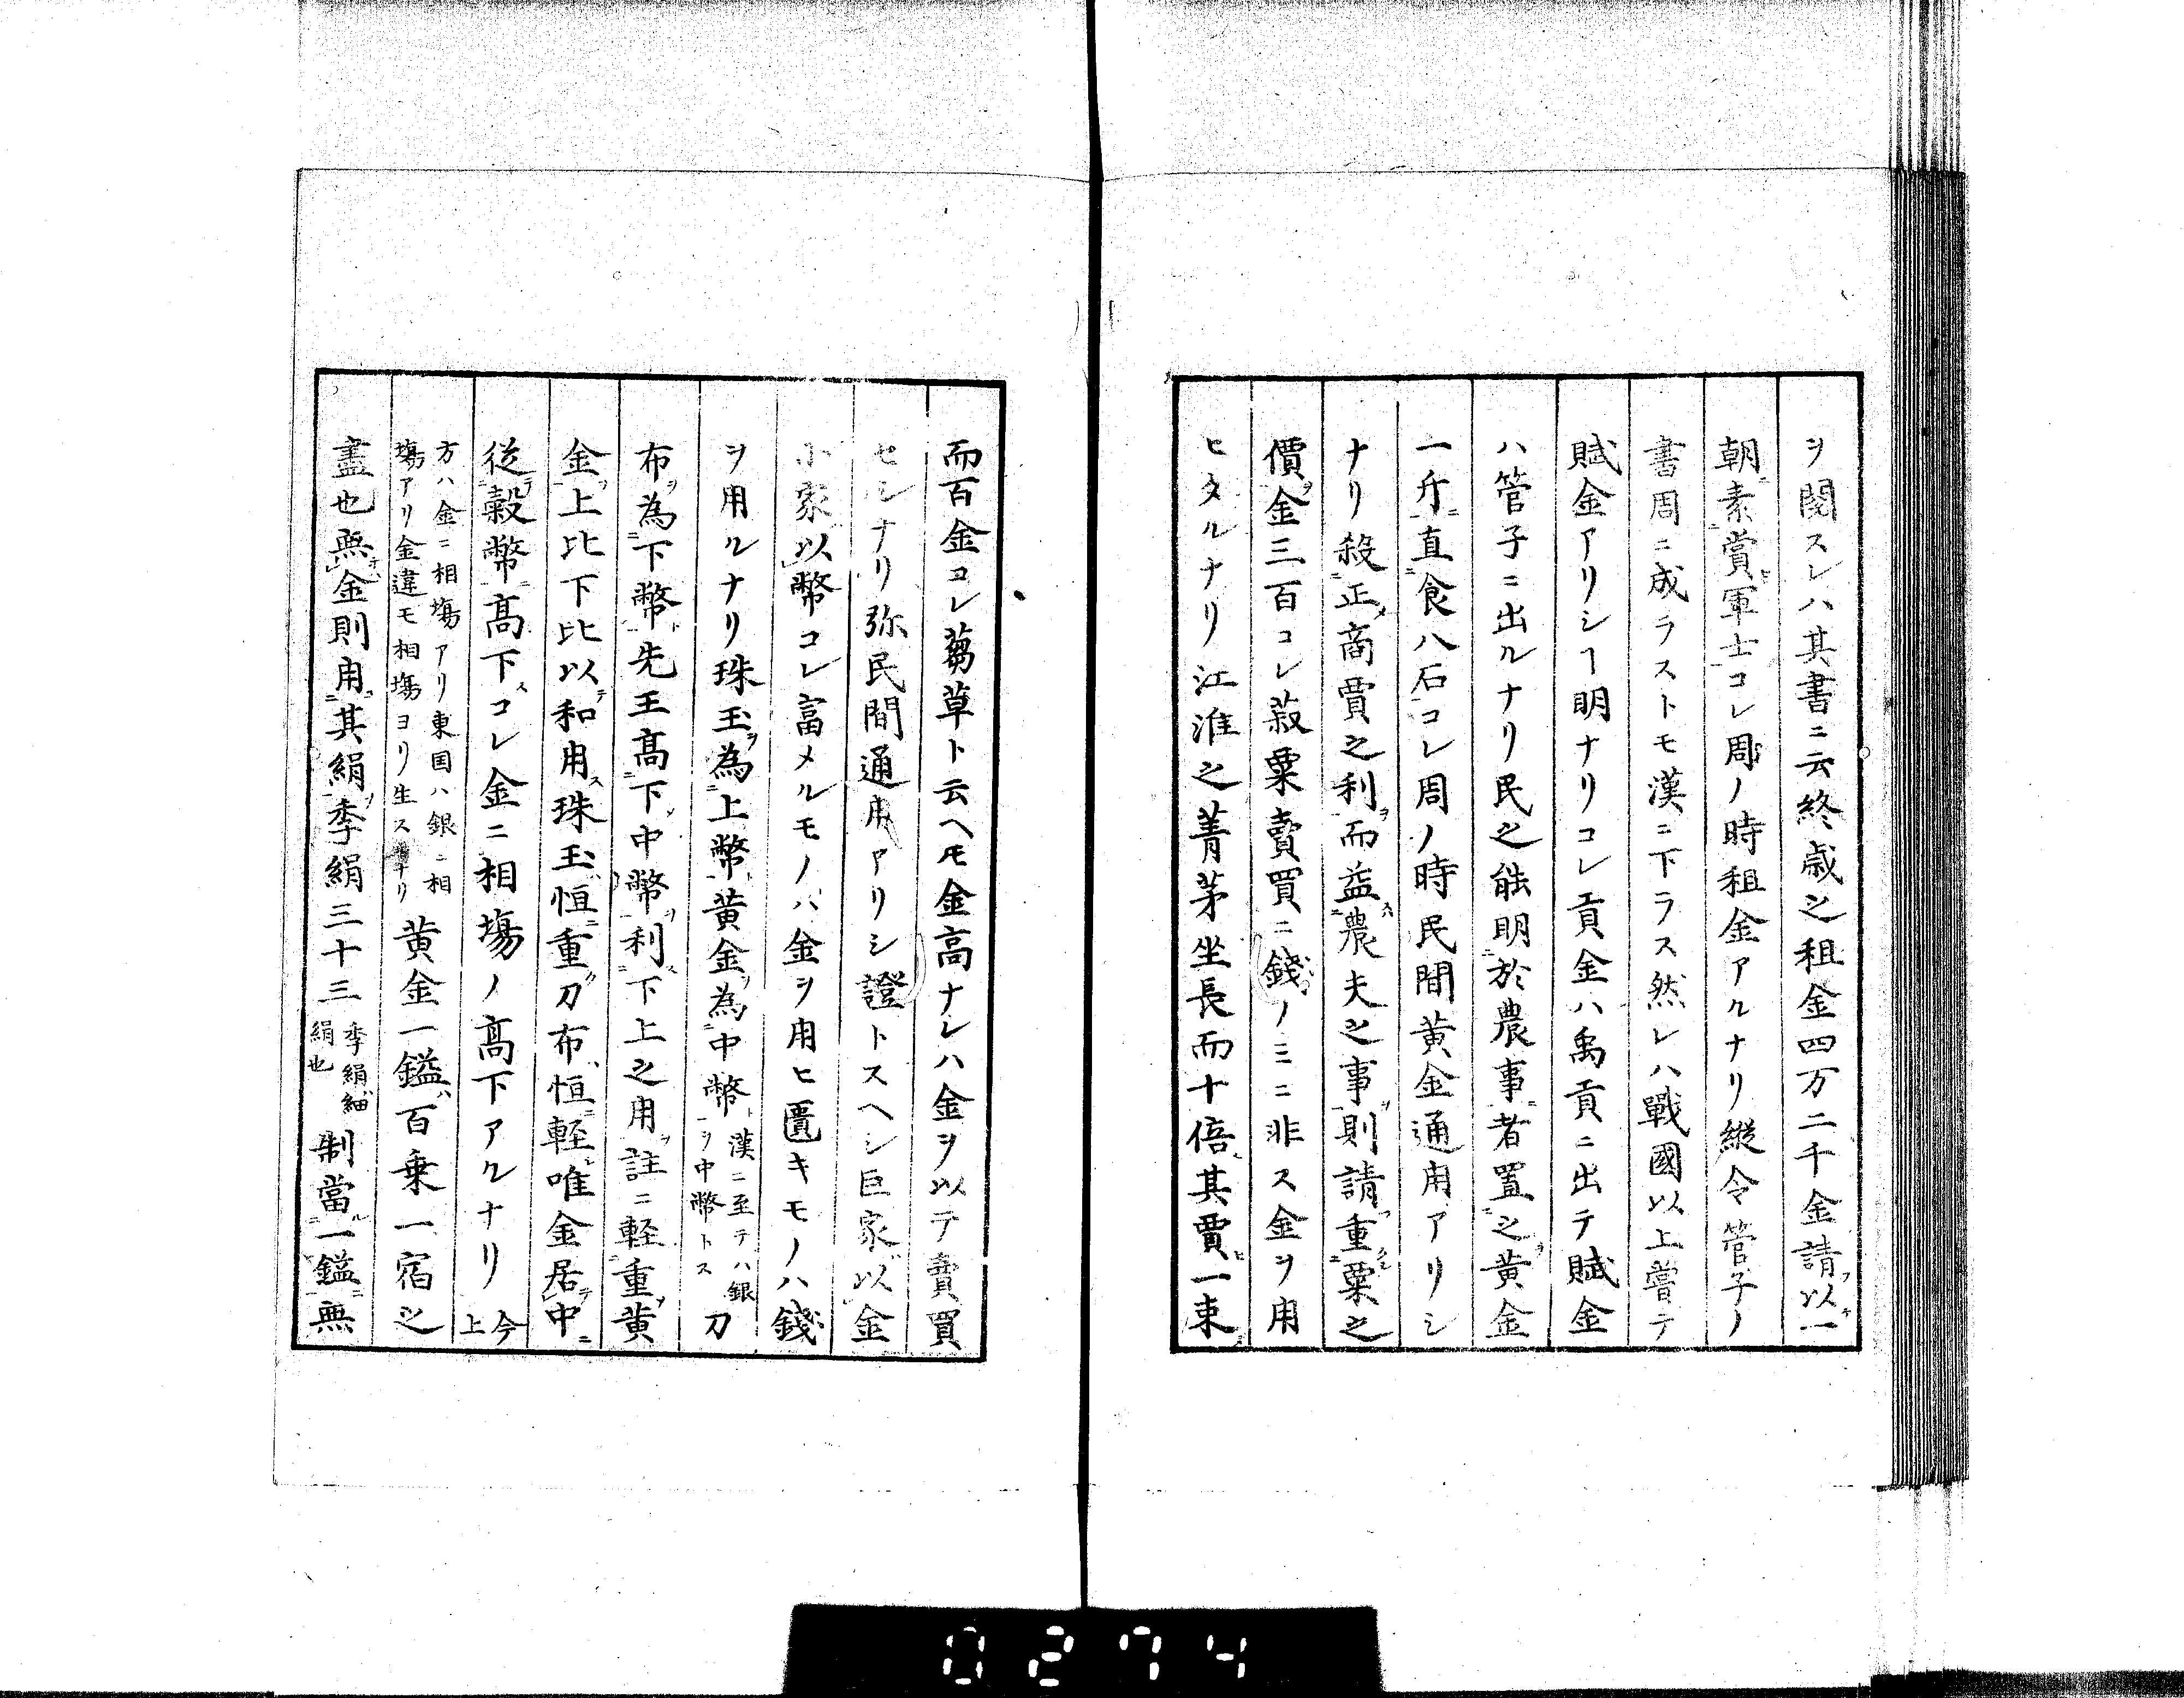 ヲ閲スレハ其書ニ云終歳之租金四万二千金請以一
朝素賞軍士コレ周ノ時租金アルナリ縦令管子ノ
書周ニ成ラストモ漢ニ下ラス然レハ戰國以上嘗テ
賦金アリシヿ明ナリコレ貢金ハ禹貢ニ出テ賦金
ハ管子ニ出ルナリ民之能明於農事者置之黄金
一斤直食八石コレ周ノ時民間黄金通用アリシ
ナリ殺正商賈之利而益農夫之事則請重粟之
價金三百コレ菽粟賣買ニ錢ノミニ非ス金ヲ用
ヒタルナリ江淮之菁茅坐長而十倍其賈一束
而百金コレ蒭草ト云ヘモ金高ナレハ金ヲ以テ賣買
セシナリ弥民間通用アリシ證トスヘシ巨家以金
小家以幣コレ富メルモノハ金ヲ用ヒ匱キモノハ錢
ヲ用ルナリ珠玉為上幣黄金為中幣漢ニ至テハ銀ヲ中幣トス刀
布為下幣先王高下中幣利下上之用註ニ軽重黄
金上比下比以和用珠玉恒重刀布恒軽唯金居中
従穀幣高下コレ金ニ相場ノ高下アルナリ今上
方ハ金ニ相場アリ東国ハ銀ニ相場アリ金違モ相場ヨリ生ス黄金一鎰百乗一宿之
盡也無金則用其絹季絹三十三季絹細絹也制當一鎰無
0274